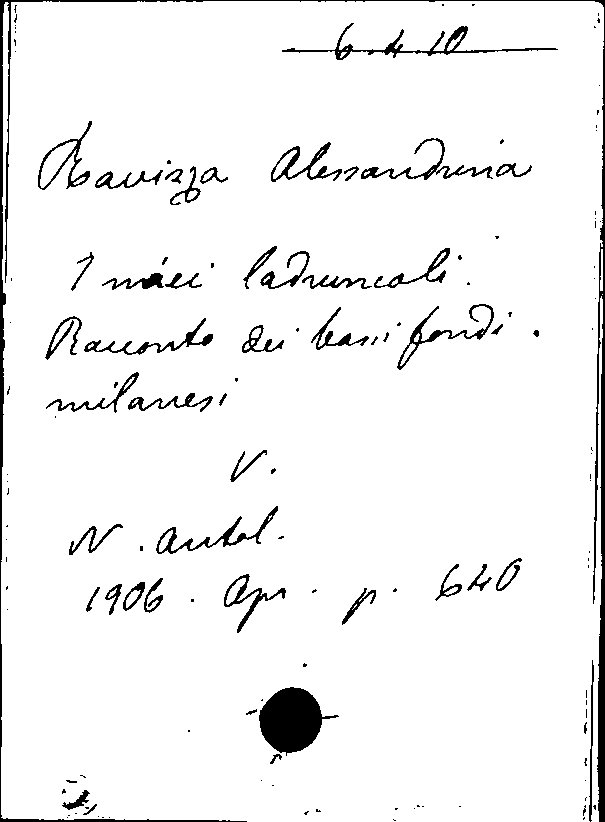 6.4.10
Ravizza Alessandrina
I miei ladruncoli.
Racconto dei bassi fondi.
milanesi
V.
N. Antol.
1906. Apr. p. 640